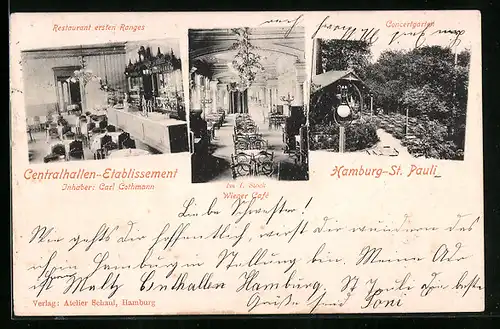 Restaurant ersten Ranges
Concertgarten
Centralhallen-Etablissement
Inhaber: Carl Cothmann
Im I. Stock
Wiener Café
Hamburg-St. Pauli
Liebe Schwester!
Wie gehts dir hoffentlich, wirst dich wundern das
ich in Hamburg in Stellung bin. Meine Adr
ist Centhallen Hamburg. St Pauli
Grüße
Toni
Verlag: Atelier Schaul, Hamburg